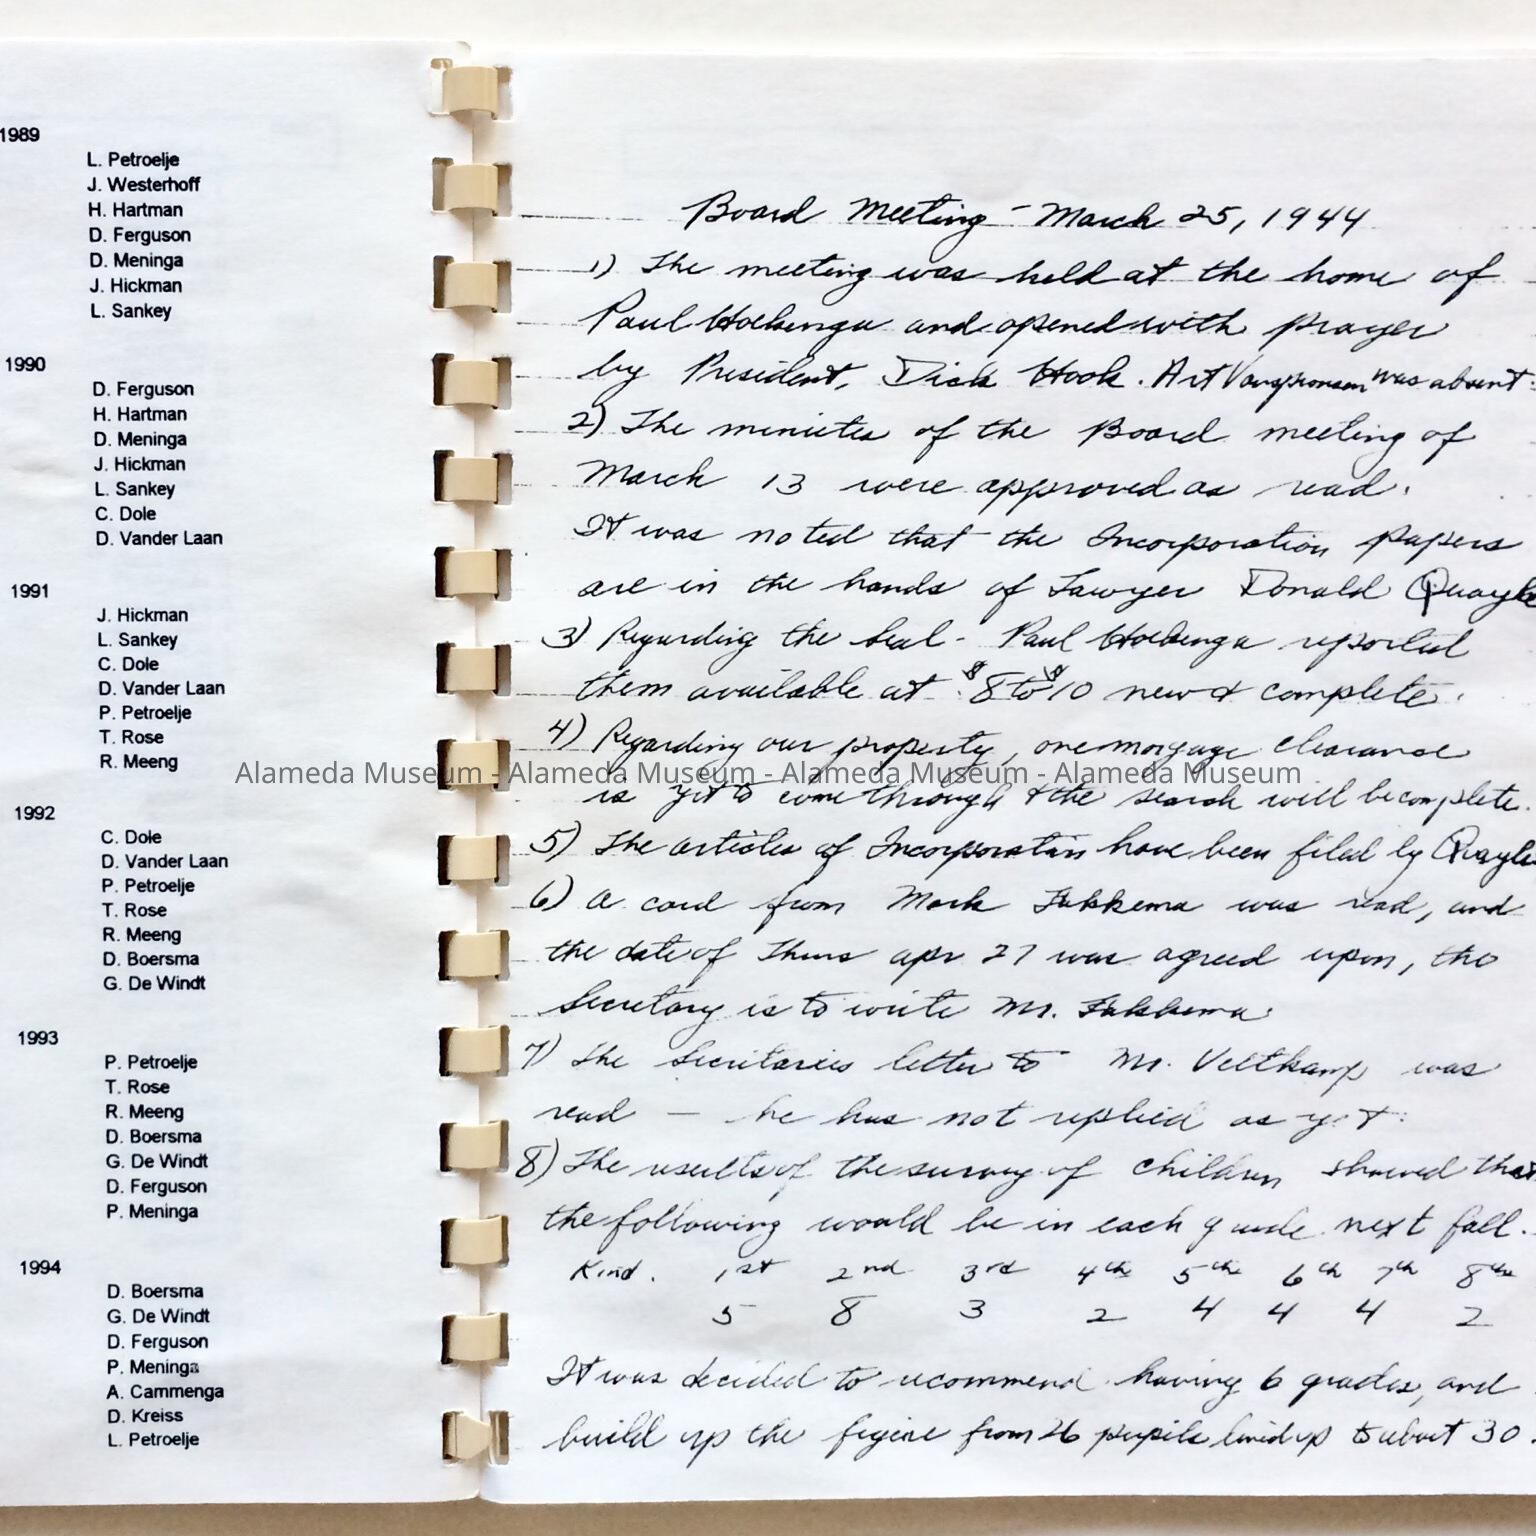 1989
L. Petroelje
J. Westerhoff
H. Hartman
D. Ferguson
D. Meninga
J. Hickman
L. Sankey
1990
D. Ferguson
H. Hartman
D. Meninga
J. Hickman
L. Sankey
C. Dole
D. Vander Laan
1991
J. Hickman
L. Sankey
C. Dole
D. Vander Laan
P. Petroelje
T. Rose
R. Meeng
1992
C. Dole
D. Vander Laan
P. Petroelje
T. Rose
R. Meeng
D. Boersma
G. De Windt
1993
P. Petroelje
T. Rose
R. Meeng
D. Boersma
G. De Windt
D. Ferguson
P. Meninga
1994
D. Boersma
G. De Windt
D. Ferguson
P. Meninga
A. Cammenga
D. Kreiss
L. Petroelje
Board Meeting - March 25, 1944
1) The meeting was held at the home of
Paul Hoekenga and opened with prayer
by President, Dick Hook. Art was absent.
2) The minutes of the Board meeting of
March 13 were approved as read.
It was noted that the Incorporation papers
are in the hands of Lawyer Donald Quayle
3) Regarding the Seal - Paul Hoekenga reported
them available at $8 to $10 new & complete.
4) Regarding our property, one morgage clearance
is yet to come through & the search will be complete.
Alameda Museum - Alameda Museum - Alameda Museum - Alameda Museum
5) The articles of Incorporation have been filed by Quayle
6) A card from Mark Fakkema was read, and
the date of Thurs Apr 27 was agreed upon, the
Secretary is to write Mr. Fakkema.
7) The Secretaries letter to Mr. Veltkamp was
read — he has not replied as yet.
8) The results of the survey of children showed that
the following would be in each grade next fall.
Kind. 1st 2nd 3rd 4th 5th 6th 7th 8th
5 8 3 2 4 4 4 2
It was decided to recommend having 6 grades, and
build up the figure from 26 pupils lined up to about 30.